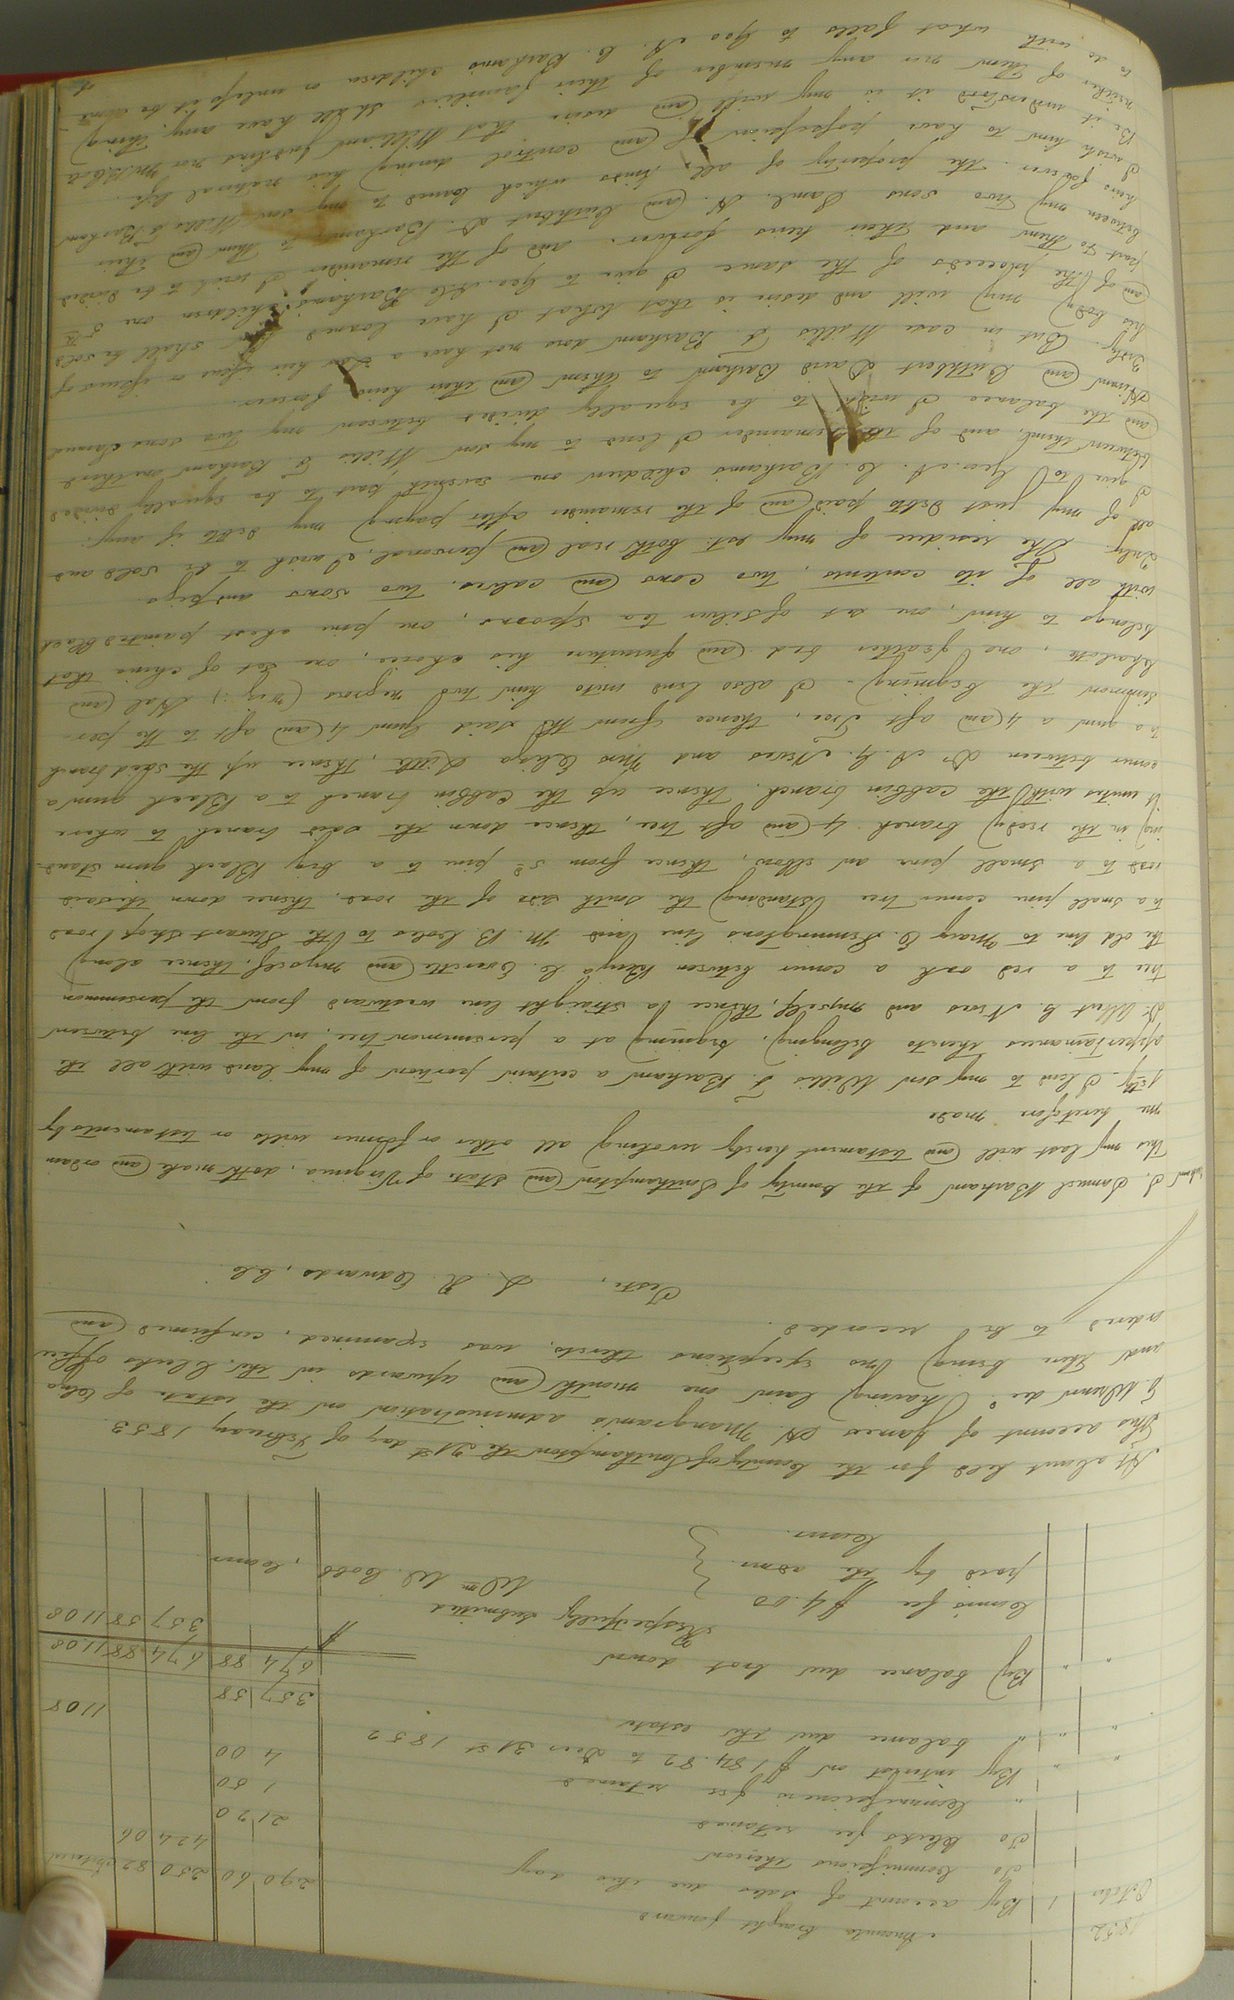 1852 Amounts brought forward 290 60 250 82 Interest
October 1 By account of sales due this day 424 06
To Commissions thereon 21 20
To Clerks fee retained 1 50
" Commissioners fee retained 4 00
" " By interest on $184.82 to Decr 31st 1852 11 08
" " To balance due the estate 357 58
674 88 674 88 11 08
" " By balance due brot down $ 357 58 11 08
Comrs fee $4.00 Respectfully submitted
paid by the admr. Wm W. Cobb, Comr.
Comr.
At a Court held for the County of Southampton the 21st day of February 1853.
This account of James N. Mangram's administration on the estate of
decd. having laid one month and upwards in the Clerks office
and there being no exceptions thereto, was examined, confirmed and
ordered to be recorded.
Teste, L. R. Edwards, C.C.
I, Samuel Barham of the County of Southampton and State of Virginia, doth make and ordain
this my last will and testament hereby revoking all other or former wills or testaments by
me heretofore made
1stly. I lend to my son Willis F. Barham a certain portion of my land with all the
appertainances thereto belonging, begining at a persimmon tree, in the line between
Dr. Albert G. Nives and myself, thence a straight line westward from the persimmon
tree to a red oak a corner between Benja. C. Everette and myself, thence along
the old line to Mary E. Simmington's line and M. B. Cools to the Stewart Shop road
to a small pine corner tree standing the south side of the road, thence down the said
road to a small pine an elbow, thence from sd pine to a big Black gum stand-
ing in the reedy branch 4 and aft tree, thence down the said branch to where
it unites with the cabbin branch, thence up the cabbin branch to a Black gum a
corner between Dr A. G. Nives and Mrs Eliza Little, thence up the said branch
to a gum a 4 and aft tree, thence from the said gum 4 and aft to the per-
simmon the begining. I also lend unto him two negroes (viz:) Nel and
Charlotte, one feather bed and furniture his choice, one set of china that
belongs to him, one set of silver tea spoons, one pine chest painted black
with all of its contents, two cows and calves, two sows and pigs.
2ndly. The residue of my est. both real and personal, I wish to be sold and
all of my just debts paid and the remainder after paying my debts if any;
I give to Geo. N. C. Barhams children one seventh part to be equally divided
between them, and of the remainder I lend to my son Willis F. Barham one third
and the balance I wish to be equally divided between my two sons Samuel
Nixon and Cuthbert David Barham to them and their heirs forever.
3rdly. But in case Willis F. Barham does not have a heir or issue of
his body my will and desire is that what I have loaned him shall be sold
and of the proceeds of the same I give to Geo. N. C. Barhams children one 5th
part to them and their heirs forever. and of the remainder I wish to be divided
between my two sons Saml. N. and Cuthbert D. Barham to them and their
heirs forever. The property of all kinds which loaned to my son Willis F. Barham
I wish him to have possession and control during his natural life.
Be it understood it is my will and desire that William Judkins nor
neither of them nor any member of their families shall have any thing
to do with what falls to Geo N. C. Barhams children